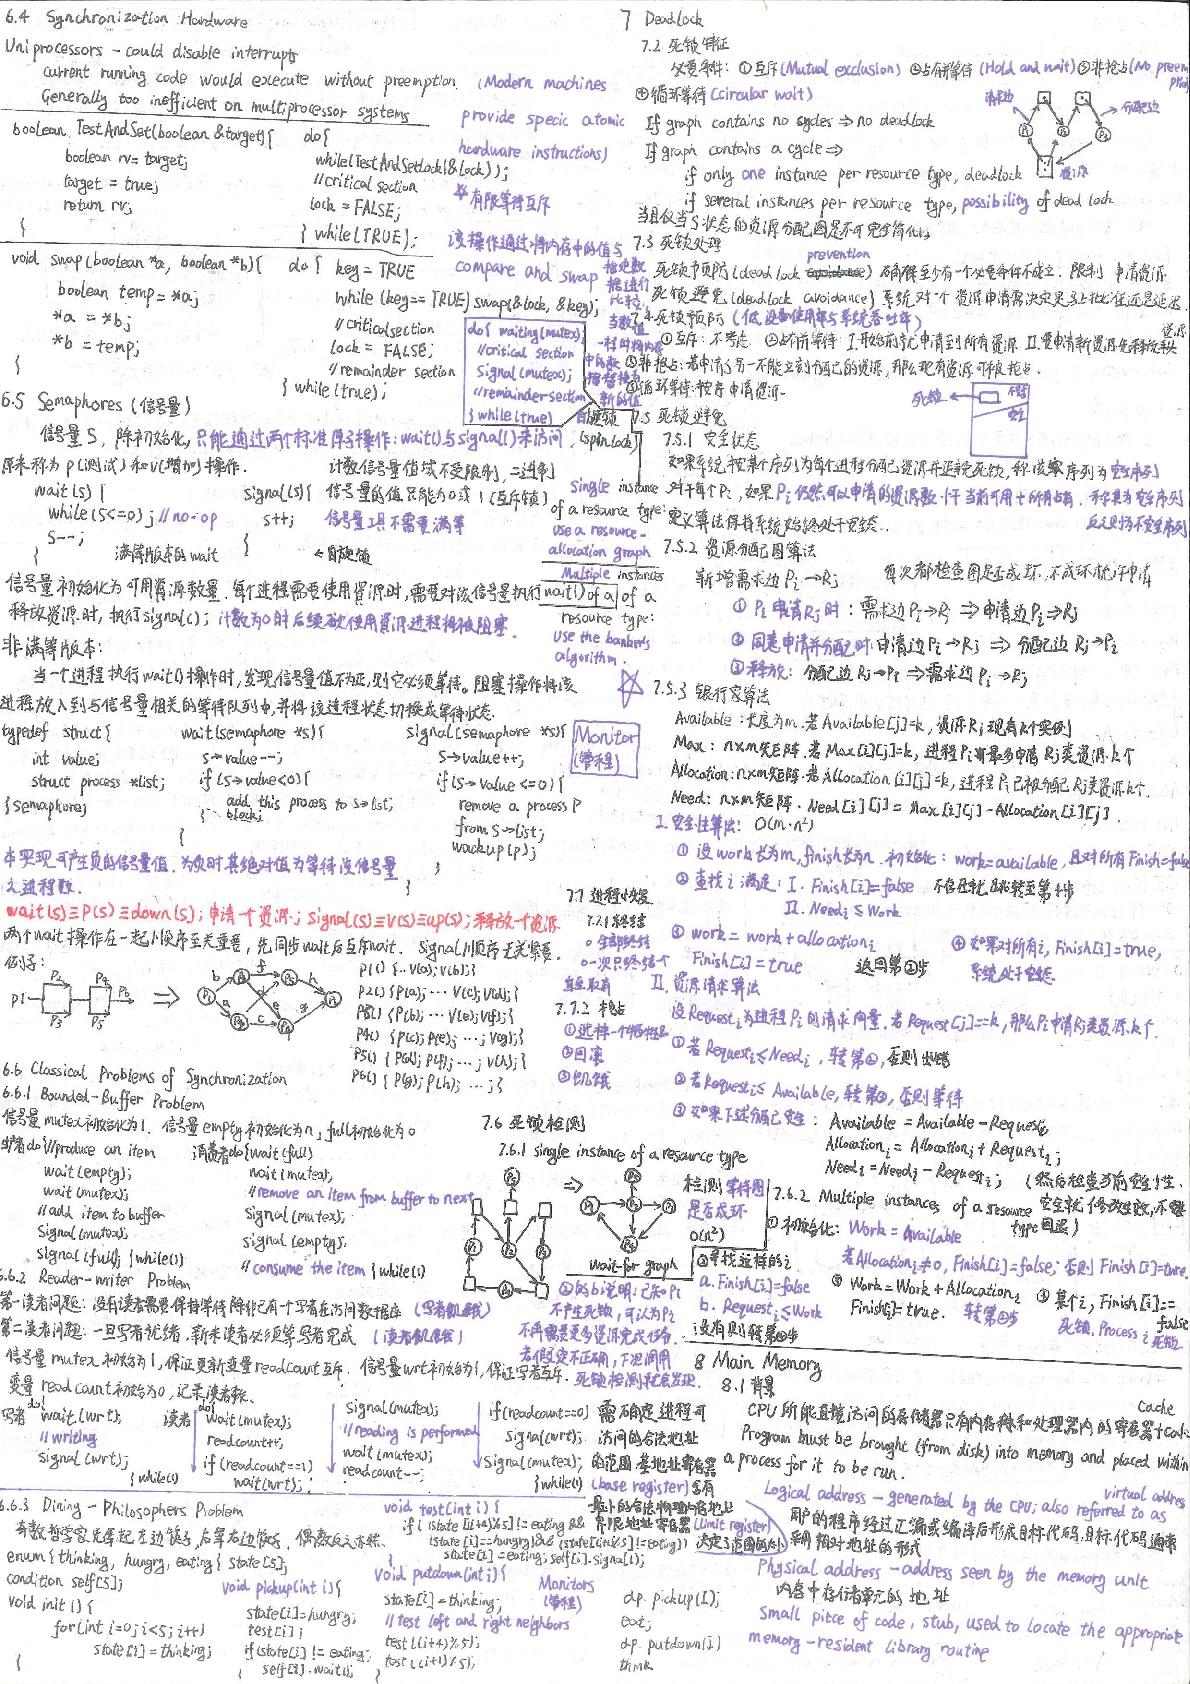 6.4 Synchronization Hardware
Uniprocessors - could disable interrupts
current running code would execute without preemption. (Modern machines
Generally too inefficient on multiprocessor systems
provide specic atomic
hardware instructions)
boolean TestAndSet(boolean &target){
boolean rv=target;
target = true;
return rv;
}
do{
while(TestAndSetLock(&lock));
//critical section
lock = FALSE;
} while(TRUE);
有限等待互斥
void swap(boolean *a, boolean *b){
boolean temp=*a;
*a = *b;
*b = temp;
}
do{ key = TRUE
while (key== TRUE) swap(&lock, &key);
//criticalsection
lock = FALSE;
//remainder section
} while(true);
该操作通过将内存中的值与
compare and swap 指定数
据进行
比较,
当数值
一样时将内存
中的数
据替换为
新的值
do{ waiting(mutex);
//critical section
Signal(mutex);
//remainder section
} while(true)
自旋锁
(spinlock)
6.5 Semaphores (信号量)
信号量S, 除初始化, 只能通过两个标准原子操作: wait()与signal()来访问.
原来称为P(测试)和V(增加)操作.
计数信号量值域不受限制, 二进制
信号量的值只能为0或1(互斥锁)
信号量工具不需要满等
wait(s){
while(S<=0); //no-op
S--;
}
满等版本的wait
signal(s){
s++;
}
←自旋锁
single instance
of a resource type:
use a resource-
allocation graph
Multiple instances
of a
resource type:
use the banker's
algorithm.
信号量初始化为可用资源数量. 每个进程需要使用资源时, 需要对该信号量执行wait()
释放资源时, 执行signal(); 计数为0时后续欲使用资源进程将被阻塞.
非满等版本:
当一个进程执行wait()操作时, 发现信号量值不为正, 则它必须等待. 阻塞操作将该
进程放入到与信号量相关的等待队列中, 并将该进程状态切换成等待状态.
typedef struct{
int value;
struct process *list;
}semaphore;
wait(semaphore *s){
s->value--;
if(s->value<0){
add this process to s->list;
block;
}
}
signal(semaphore *s){
s->value++;
if(s->value <=0){
remove a process P
from S->list;
wackup(p);
}
Monitor
(管程)
本实现可产生负的信号量值. 为负时其绝对值为等待该信号量
之进程数.
wait(s)≡P(s)≡down(s); 申请一个资源.; signal(s)≡V(s)≡up(s); 释放一个资源.
两个wait操作在一起 顺序至关重要, 先同步wait后互斥wait. signal顺序无关紧要.
例子:
P1 P2 P3 P4 P5 P6
P1() {..V(a);V(b);}
P2() {P(a);... V(c);V(d);}
P3() {P(b);... V(e);V(f);}
P4() {P(c);P(e); ...; V(g);}
P5() {P(d);P(f); ...; V(h);}
P6() {P(g);P(h); ...;}
6.6 Classical Problems of Synchronization
6.6.1 Bounded-Buffer Problem
信号量mutex初始化为1. 信号量empty初始化为n, full初始化为0
生产者do{//produce an item
wait(empty);
wait(mutex);
//add item to buffer
Signal(mutex);
signal(full); }while(1)
消费者do{wait(full)
wait(mutex);
//remove an item from buffer to next
signal(mutex);
signal(empty);
//consume the item }while(1)
6.6.2 Reader-writer Problem
第一读者问题: 没有读者需要保持等待除非已有一个写者在访问数据库 (写者饥饿)
第二读者问题: 一旦写者就绪, 新来读者必须等写者完成 (读者饥饿)
信号量mutex初始为1, 保证更新变量readcount互斥. 信号量wrt初始为1, 保证写者互斥.
变量readcount初始为0, 记录读者数.
写者 do{
wait(wrt);
//writing
signal(wrt);
}while(1)
读者 do{
wait(mutex);
readcount++;
if(readcount==1)
wait(wrt);
signal(mutex);
//reading is performed
wait(mutex);
readcount--;
if(readcount==0)
signal(wrt);
signal(mutex);
}while(1)
6.6.3 Dining-Philosophers Problem
奇数哲学家先拿起左边筷子, 后拿右边筷子, 偶数反之亦然.
enum{thinking, hungry, eating} state[5];
condition self[5];
void init(){
for(int i=0;i<5;i++)
state[i]=thinking;
}
void pickup(int i){
state[i]=hungry;
test[i];
if(state[i] != eating)
self[i].wait();
}
void test(int i){
if((state[(i+4)%5] != eating &&
(state[i]==hungry)&&(state[(i+1)%5] != eating))
state[i]=eating; self[i].signal();
}
void putdown(int i){
state[i]=thinking;
//test left and right neighbors
test((i+4)%5);
test((i+1)%5);
}
Monitors
(管程)
dp.pickup(I);
eat;
dp.putdown(I)
think
7 Deadlock
7.2 死锁特征
必要条件: ①互斥(Mutual exclusion) ②占有并等待(Hold and wait) ③非抢占(No preemption)
④循环等待(circular wait)
请求边 分配边
资源
If graph contains no cycles ⇒ no deadlock
If graph contains a cycle⇒
if only one instance per resource type, deadlock
if several instances per resource type, possibility of dead lock
当且仅当S状态的资源分配图是不可完全简化的
7.3 死锁处理
死锁预防(dead lock prevention) 确保至少有一个必要条件不成立. 限制 申请资源
死锁避免(deadlock avoidance) 系统对一个资源申请需决定是马上批准还是延迟.
7.4 死锁预防 (低设备使用率与系统吞吐率)
①互斥: 不考虑. ②占有并等待: I.开始前就申请到所有资源 II.要申请新资源先释放
③非抢占: 若申请了另一不能立刻分配的资源, 那么现有资源可被抢占.
④循环等待: 按序申请资源.
死锁 不安全 安全
7.5 死锁避免
7.5.1 安全状态
如果系统按某个序列为每个进程分配资源并避免死锁, 称该序列为安全序列
对于每个Pi, 如果Pi仍然可以申请的资源数小于当前可用+所有占有, 称其为安全序列
反之则为不安全序列
定义算法保持系统始终处于安全.
7.5.2 资源分配图算法
新增需求边 Pi→Rj 每次都检查图是否成环, 不成环就许申请
① Pi申请Rj时: 需求边Pi→Rj ⇒申请边Pi→Rj
② 同意申请并分配时: 申请边Pi→Rj ⇒ 分配边Rj→Pi
③ 释放: 分配边Rj→Pi ⇒需求边Pi→Rj
7.5.3 银行家算法
Available: 长度为m. 若Available[j]=k, 资源Rj现有k个实例
Max: n×m矩阵. 若Max[i][j]=k, 进程Pi最多申请Rj类资源k个
Allocation: n×m矩阵. 若Allocation[i][j]=k, 进程Pi已被分配Rj类资源k个.
Need: n×m矩阵. Need[i][j] = Max[i][j]-Allocation[i][j].
I. 安全性算法: O(m·n²)
① 设work长为m, finish长为n. 初始化: work=available, 且对所有Finish=false
② 查找i满足: I. Finish[i]=false 不存在就跳转至第4步
II. Needi ≤ Work
③ work = work+allocationi
Finish[i]=true 返回第②步
④ 如果对所有i, Finish[i]=true,
系统处于安全.
II. 资源请求算法
设Requesti为进程Pi的请求向量. 若Requesti[j]==k, 那么Pi申请Rj类资源k个.
① 若Requesti≤Needi, 转第②, 否则出错
② 若Requesti≤Available, 转第③, 否则等待
③ 如果下述分配已安全: Available = Available-Requesti;
Allocationi = Allocationi + Requesti;
Needi=Needi-Requesti; (然后检查当前安全性.
安全就修改生效, 不安全
回退)
7.7 进程恢复
7.7.1 终止
○ 全部终止
○ 一次只终止一个
直至取消
7.7.2 抢占
①选择一个牺牲品
②回滚
③饥饿
7.6 死锁检测
7.6.1 single instance of a resource type
wait-for graph
检测等待图
是否成环
O(n²)
7.6.2 Multiple instances of a resource type
① 初始化: Work = Available
若Allocationi≠0, Finish[i]=false; 否则Finish[i]=true.
②寻找这样的i
a. Finish[i]=false
b. Requesti≤Work
没有则转第④步
③ Work=Work+Allocationi
Finish[i]=true. 转第②步
④ 某个i, Finish[i]==false
死锁, Process i 死锁
②的b说明: 已知Pi
不产生死锁, 可认为Pi
不再需要更多资源完成任务.
若假定不正确, 下次调用
死锁检测就会发现.
8 Main Memory
8.1 背景
CPU所能直接访问的存储器只有内存和处理器内的寄存器+Cache
Program must be brought (from disk) into memory and placed within
a process for it to be run.
需确定进程可
访问的合法地址
的范围. 基地址寄存器
(base register)含有
最小的合法物理内存地址
界限地址寄存器(limit register)
决定了范围的大小
Logical address - generated by the CPU; also referred to as virtual address
用户的程序经过汇编或编译后形成目标代码, 目标代码通常
采用相对地址的形式
Physical address - address seen by the memory unit
内存中存储单元的地址
small pitce of code, stub, used to locate the appropriate
memory-resident library routine